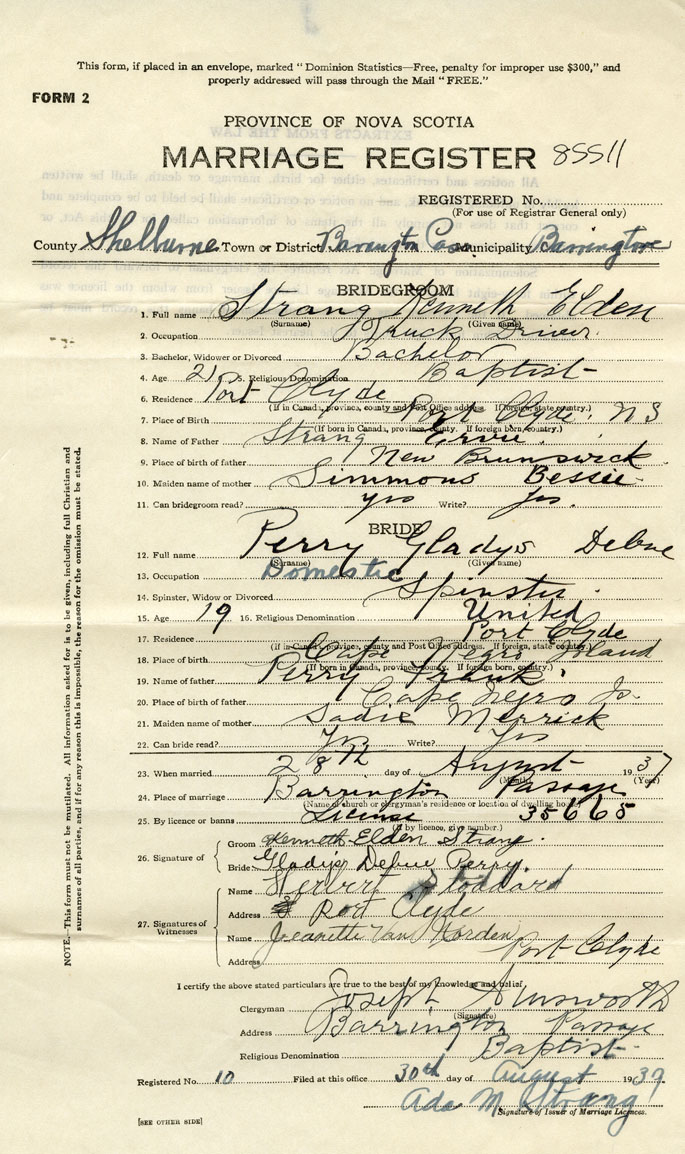 This form, if placed in an envelope, marked "Dominion Statistics—Free, penalty for improper use $300," and
properly addressed will pass through the Mail "FREE."
FORM 2
PROVINCE OF NOVA SCOTIA
MARRIAGE REGISTER 85511
REGISTERED No.
(For use of Registrar General only)
County Shelburne Town or District Barrington Municipality Barrington
BRIDEGROOM
1. Full name Strang Kenneth Elden
(Surname) (Given name)
2. Occupation Truck Driver
3. Bachelor, Widower or Divorced Bachelor
4. Age 21 5. Religious Denomination Baptist
6. Residence Port Clyde
(If in Canada, province, county and Post Office address. If foreign, state country.)
7. Place of Birth Port Clyde, N S
(If born in Canada, province, county. If foreign born, country.)
8. Name of Father Strang
9. Place of birth of father New Brunswick
10. Maiden name of mother Simmons Bessie
11. Can bridegroom read? yes Write? yes.
BRIDE
12. Full name Perry Gladys Debue
(Surname) (Given name)
13. Occupation Domestic
14. Spinster, Widow or Divorced Spinster
15. Age 19 16. Religious Denomination United
17. Residence Port Clyde
(If in Canada, province, county and Post Office address. If foreign, state country.)
18. Place of birth Cape Negro Island
(If born in Canada, province, county. If foreign born, country.)
19. Name of father Perry Frank
20. Place of birth of father Cape Negro Is.
21. Maiden name of mother Sadie Merrick
22. Can bride read? Yes Write? Yes
23. When married 28th day of August 1937
(Month) (Year)
24. Place of marriage Barrington Passage
(Name of church or clergyman's residence or location of dwelling house.)
25. By licence or banns License 35665
(If by licence, give number.)
26. Signature of Groom Kenneth Elden Strang.
Bride Gladys Debue Perry.
27. Signatures of Witnesses
Name Herbert Stoddard
Address Port Clyde
Name Jeanette Van Norden
Address Port Clyde
I certify the above stated particulars are true to the best of my knowledge and belief.
Clergyman Joseph Ainsworth
(Signature)
Address Barrington Passage
Religious Denomination Baptist
Registered No. 10 Filed at this office 30th day of August 1937.
Ada M. Strang
Signature of Issuer of Marriage Licences.
[SEE OTHER SIDE]
NOTE.—This form must not be mutilated. All information asked for is to be given, including full Christian and
surnames of all parties, and if for any reason this is impossible, the reason for the omission must be stated.